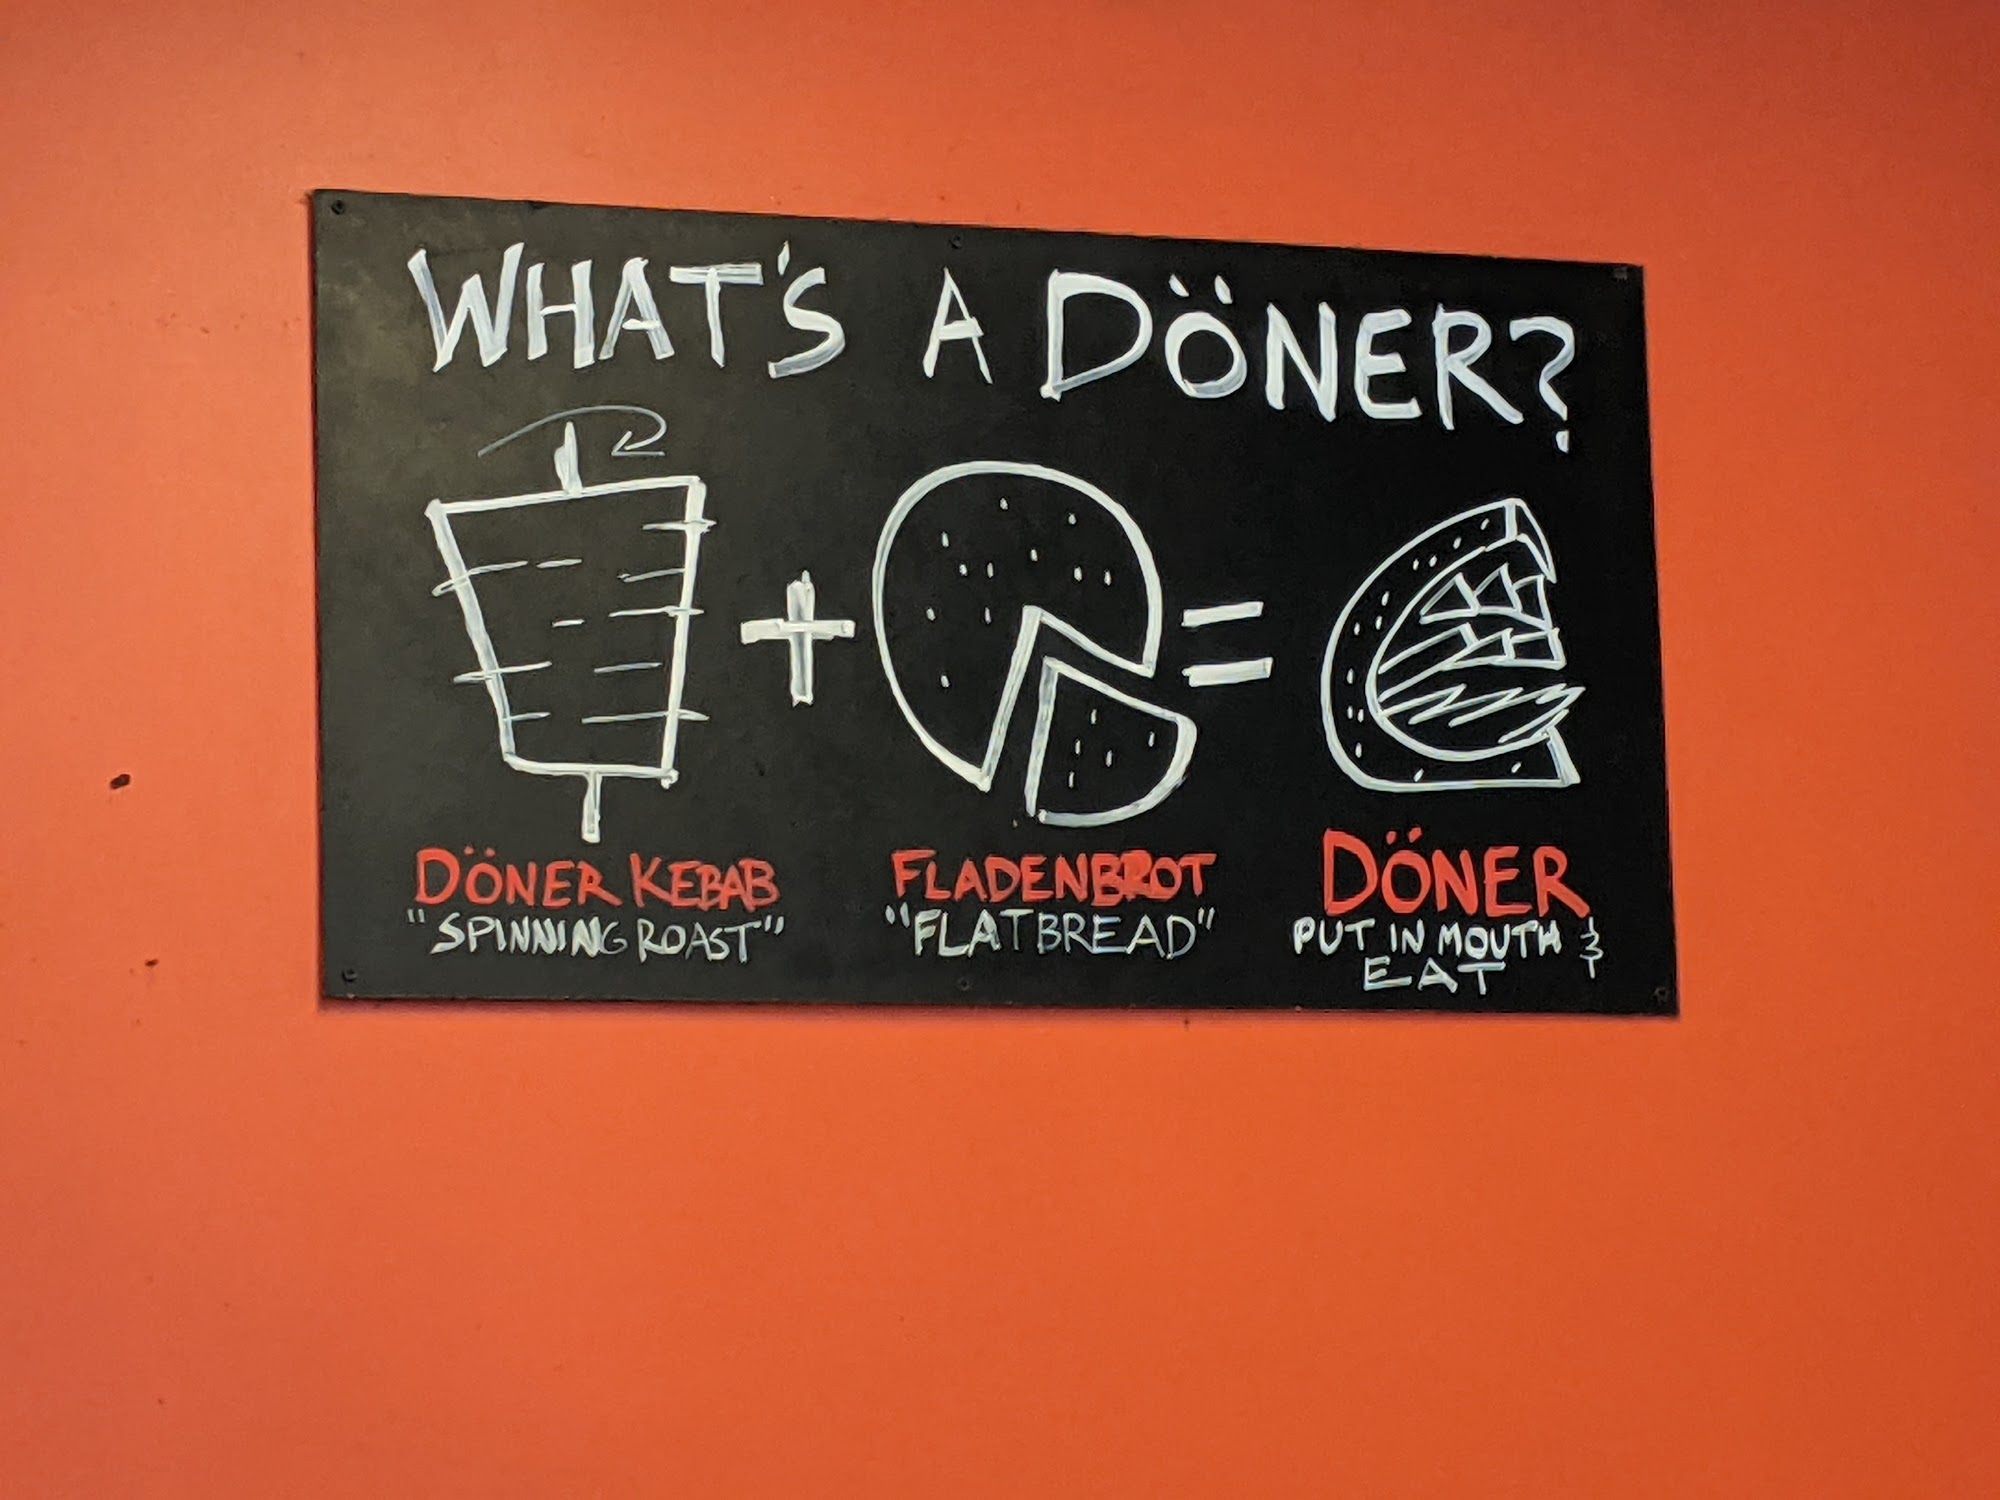 WHAT'S A DÖNER?
+ =
DÖNER KEBAB
"SPINNING ROAST"
FLADENBROT
"FLATBREAD"
DÖNER
PUT IN MOUTH &
EAT